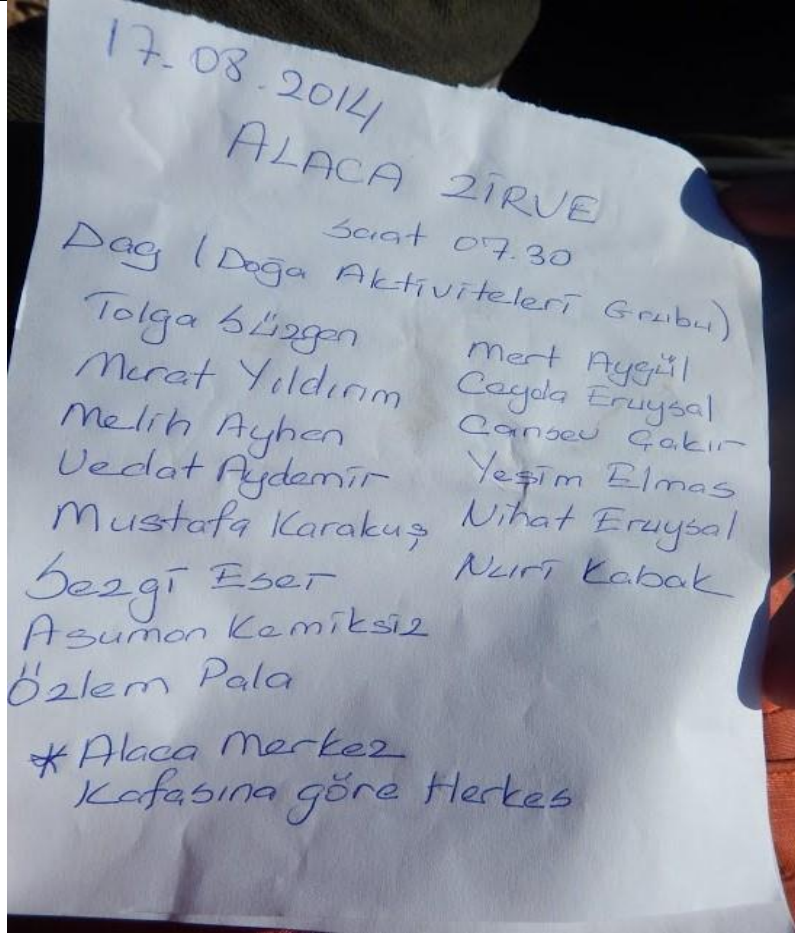 17.08.2014
ALACA ZİRVE
Saat 07.30
Dag (Doğa Aktiviteleri Grubu)
Tolga Süzgen
Murat Yıldırım
Melih Ayhan
Vedat Aydemir
Mustafa Karakuş
Sezgi Eser
Asuman Kemiksiz
Özlem Pala
Mert Aygül
Ceyda Eruysal
Cansev Çakır
Yeşim Elmas
Nihat Eruysal
Nuri Kabak
* Alaca Merkez
Kafasına göre Herkes